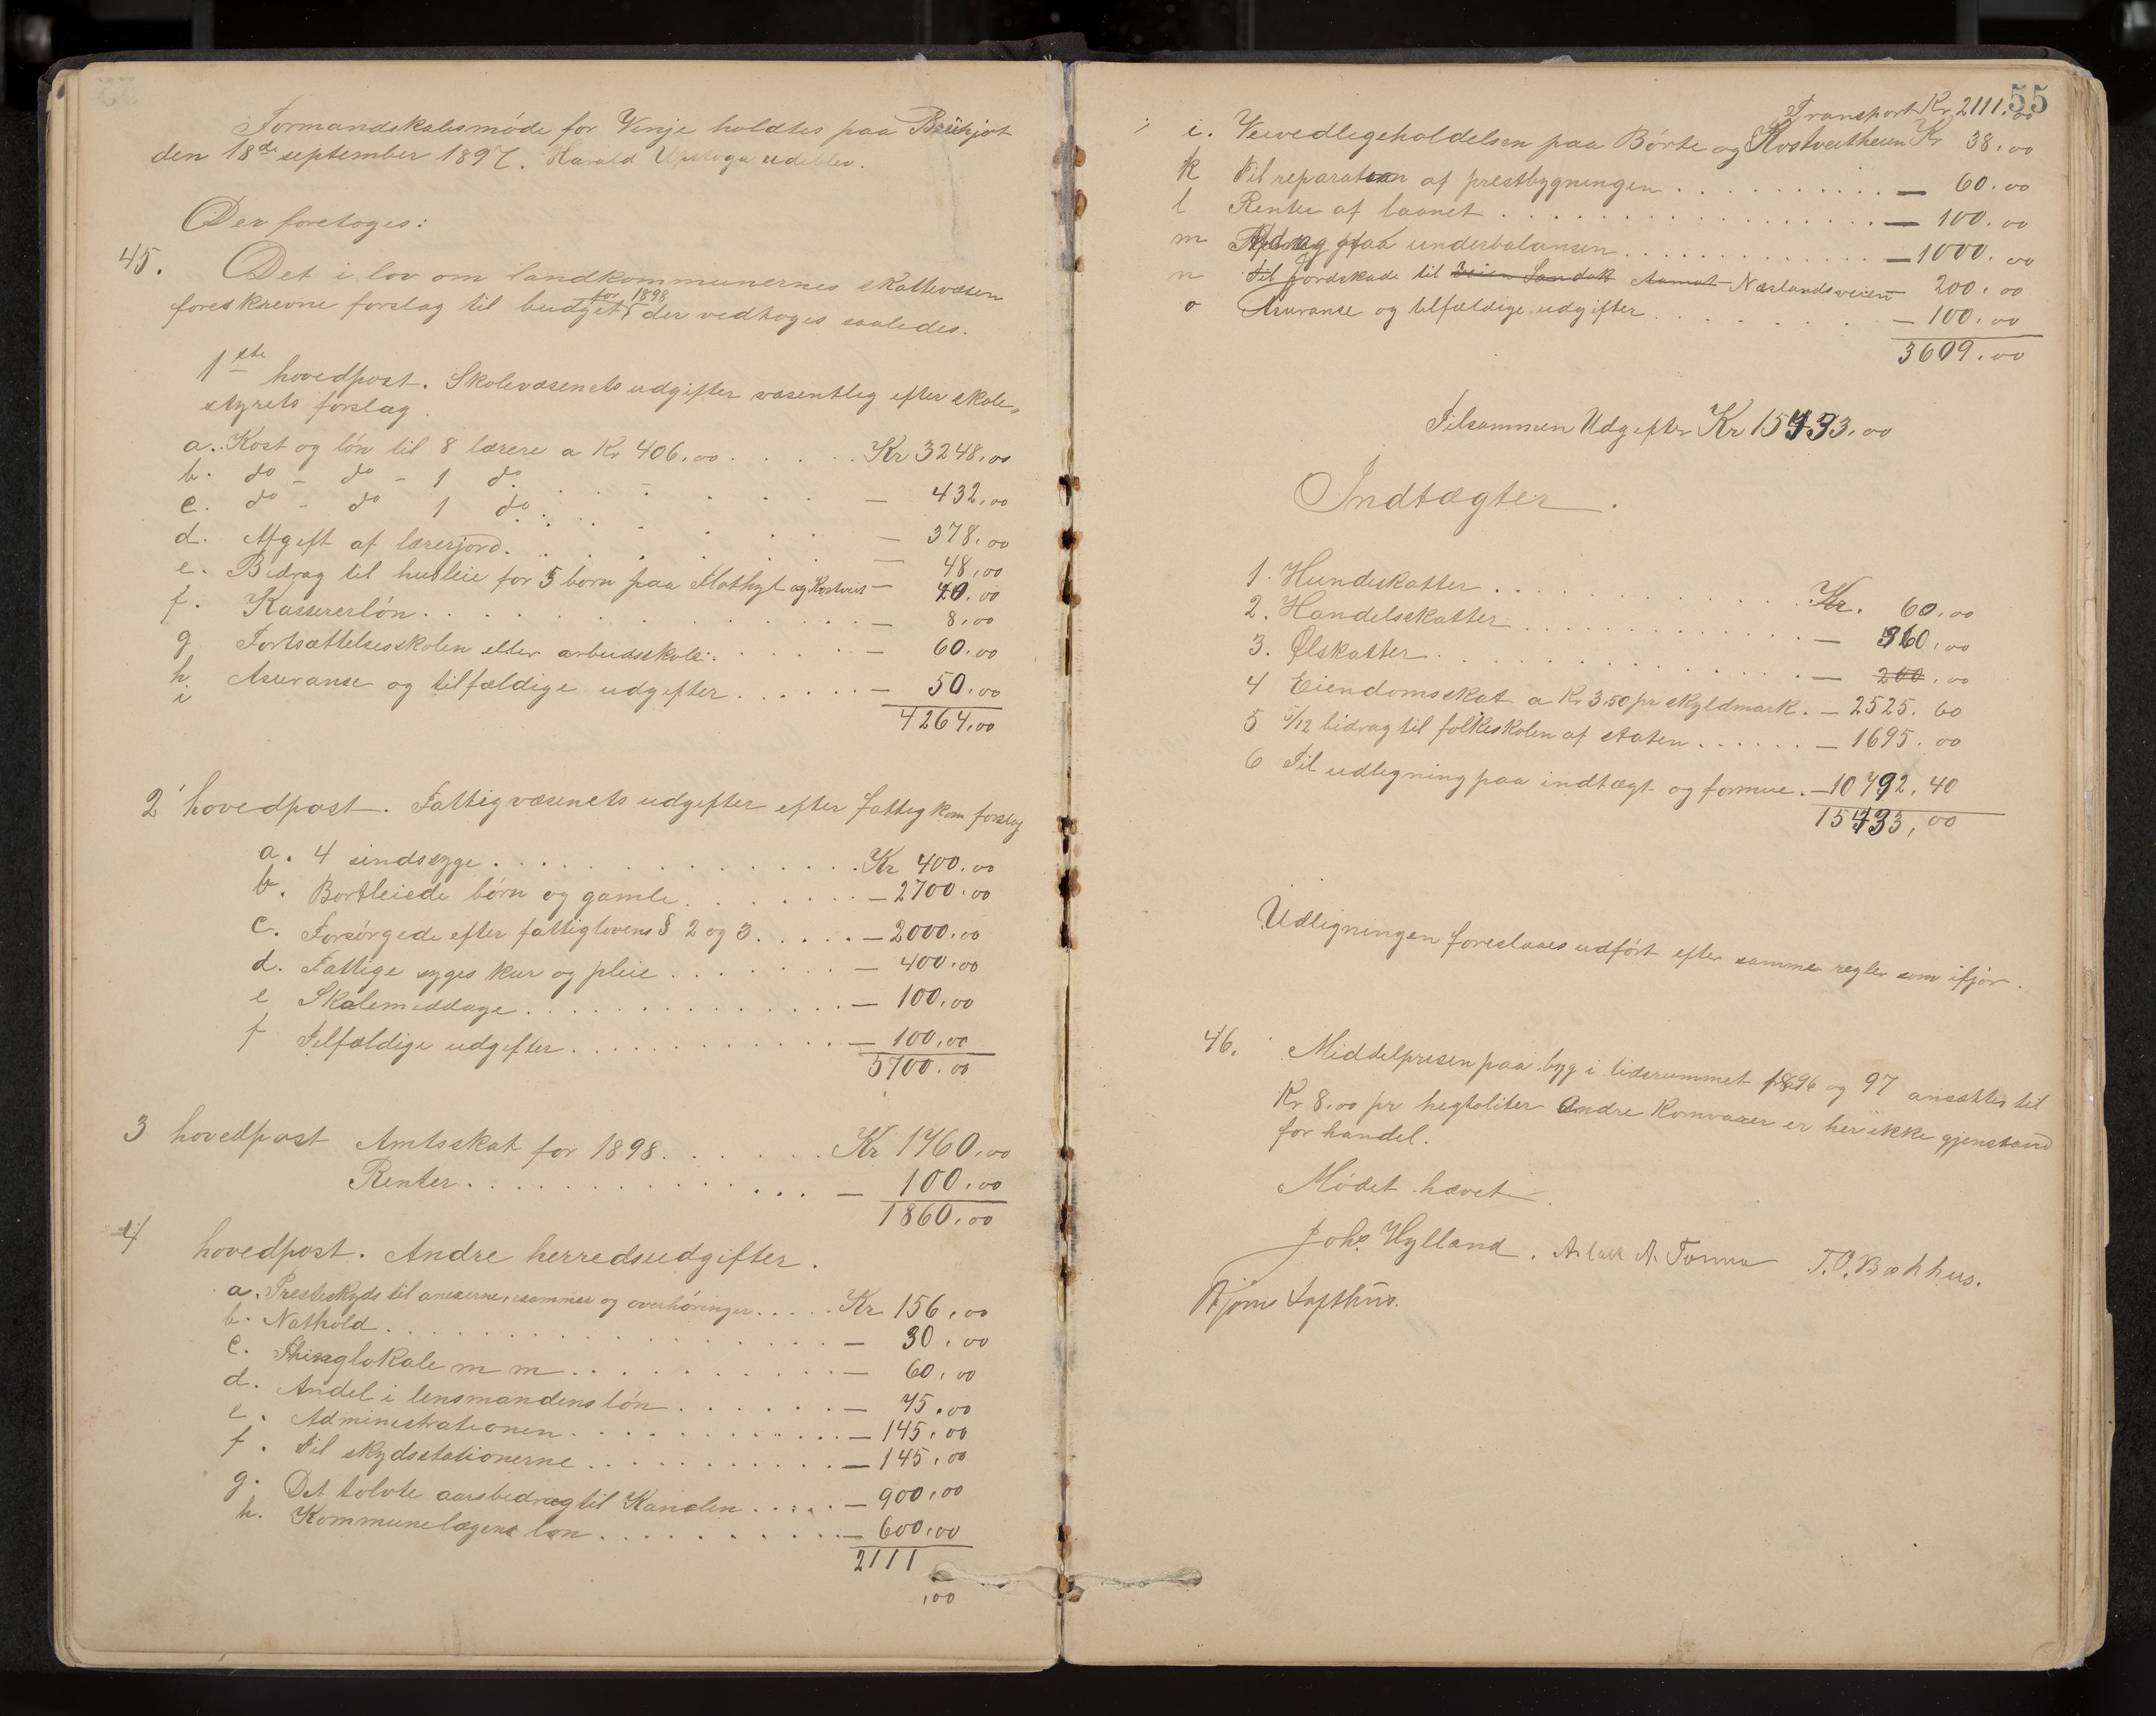 Formandskabsmøde for Vinje holdtes paa
den 18de september 1897. Harald Upstoga udeblev.
Der foretoges:
45. Det i lov om landkommunernes skattevæsen
foreskrevne forslag til budget for 1898 der vedtoges saaledes.
1ste hovedpost. Skolevæsenets udgifter væsentlig efter skole„
styrets forslag.
a. Kost og løn til 8 lærere a Kr 406,00 . . . . . Kr 3248,00
b. do - do - 1 do. . . . . . — 432,00
c. do - do 1 do. . . . . . — 378,00
d. Afgift af lærerjord. . . . . . — 48,00
e. Bidrag til husleie for 5 born paa Flothyl og Kostveit — 40,00
f. Kassererløn . . . . . . — 8,00
g Fortsættelsesskolen eller arbeidsskole . . . . . — 60,00
h Asuranse og tilfældige udgifter . . . . . . — 50,00
i
4264,00
2' hovedpost. Fattigvæsenets udgifter efter fattigkom forslag
a. 4 sindssyge . . . . . . Kr 400,00
b. Bortleiede børn og gamle . . . . . . — 2700,00
c. Forsørgede efter fattiglovens § 2 og 3 . . . . . — 2000,00
d. Fattige syges kur og pleie . . . . . . — 400,00
e Skolemiddage . . . . . . — 100,00
f Tilfældige udgifter . . . . . . — 100,00
5700,00
3 hovedpost Amtsskat for 1898 . . . . . . Kr 1760,00
Renter . . . . . . — 100,00
1860,00
4 hovedpost. Andre herredsudgifter.
a. Presteskyds til anexerne, samme og overhøringer . . . . . Kr 156,00
b. Nathold . . . . . . — 30,00
c. Thinglokale m m . . . . . . — 60,00
d. Andel i lensmandens løn . . . . . . — 75,00
e. Administrationen . . . . . . — 145,00
f. Til skydsstationerne . . . . . . — 145,00
g. Det tolvte aarsbidrag til Kanalen . . . . . — 900,00
h. Kommunelægens løn . . . . . . — 600,00
2111
,00
55
Transport Kr 2111,00
i. Veivedligeholdelsen paa Børte og Kostveitheien Kr 38,00
k Til reparation af prestbygningen . . . . . . — 60,00
l Renter af laanet . . . . . . — 100,00
m Afdrag paa underbalansen . . . . . . — 1000,00
n Til Jordskade til Veien Sandok Aamot-Næslandsveien — 200,00
o Asuranse og tilfældige udgifter . . . . . . — 100,00
3609,00
Tilsammen Udgifter Kr 15433,00
Indtægter.
1. Hundeskatter . . . . . . Kr. 60,00
2. Handelsskatter . . . . . . — 360,00
3. Ølskatter . . . . . . — 200,00
4 Eiendomsskat a Kr 3,50 pr skyldmark. — 2525,60
5 5/12 bidrag til folkeskolen af staten . . . . . . — 1695,00
6 Til udligning paa indtægt og formue. — 10792,40
15433,00
Udligningen foreslaaes udført efter samme regler som ifjor.
46. Middelprisen paa byg i tidsrummet 1896 og 97 ansættes til
Kr 8,00 pr hegtoliter Andre Kornvarer er her ikke gjenstand
for handel.
Mødet hævet
Johs Hylland. Aslak A. Tornus T. O. Bækhus.
Bjørn Lofthus.